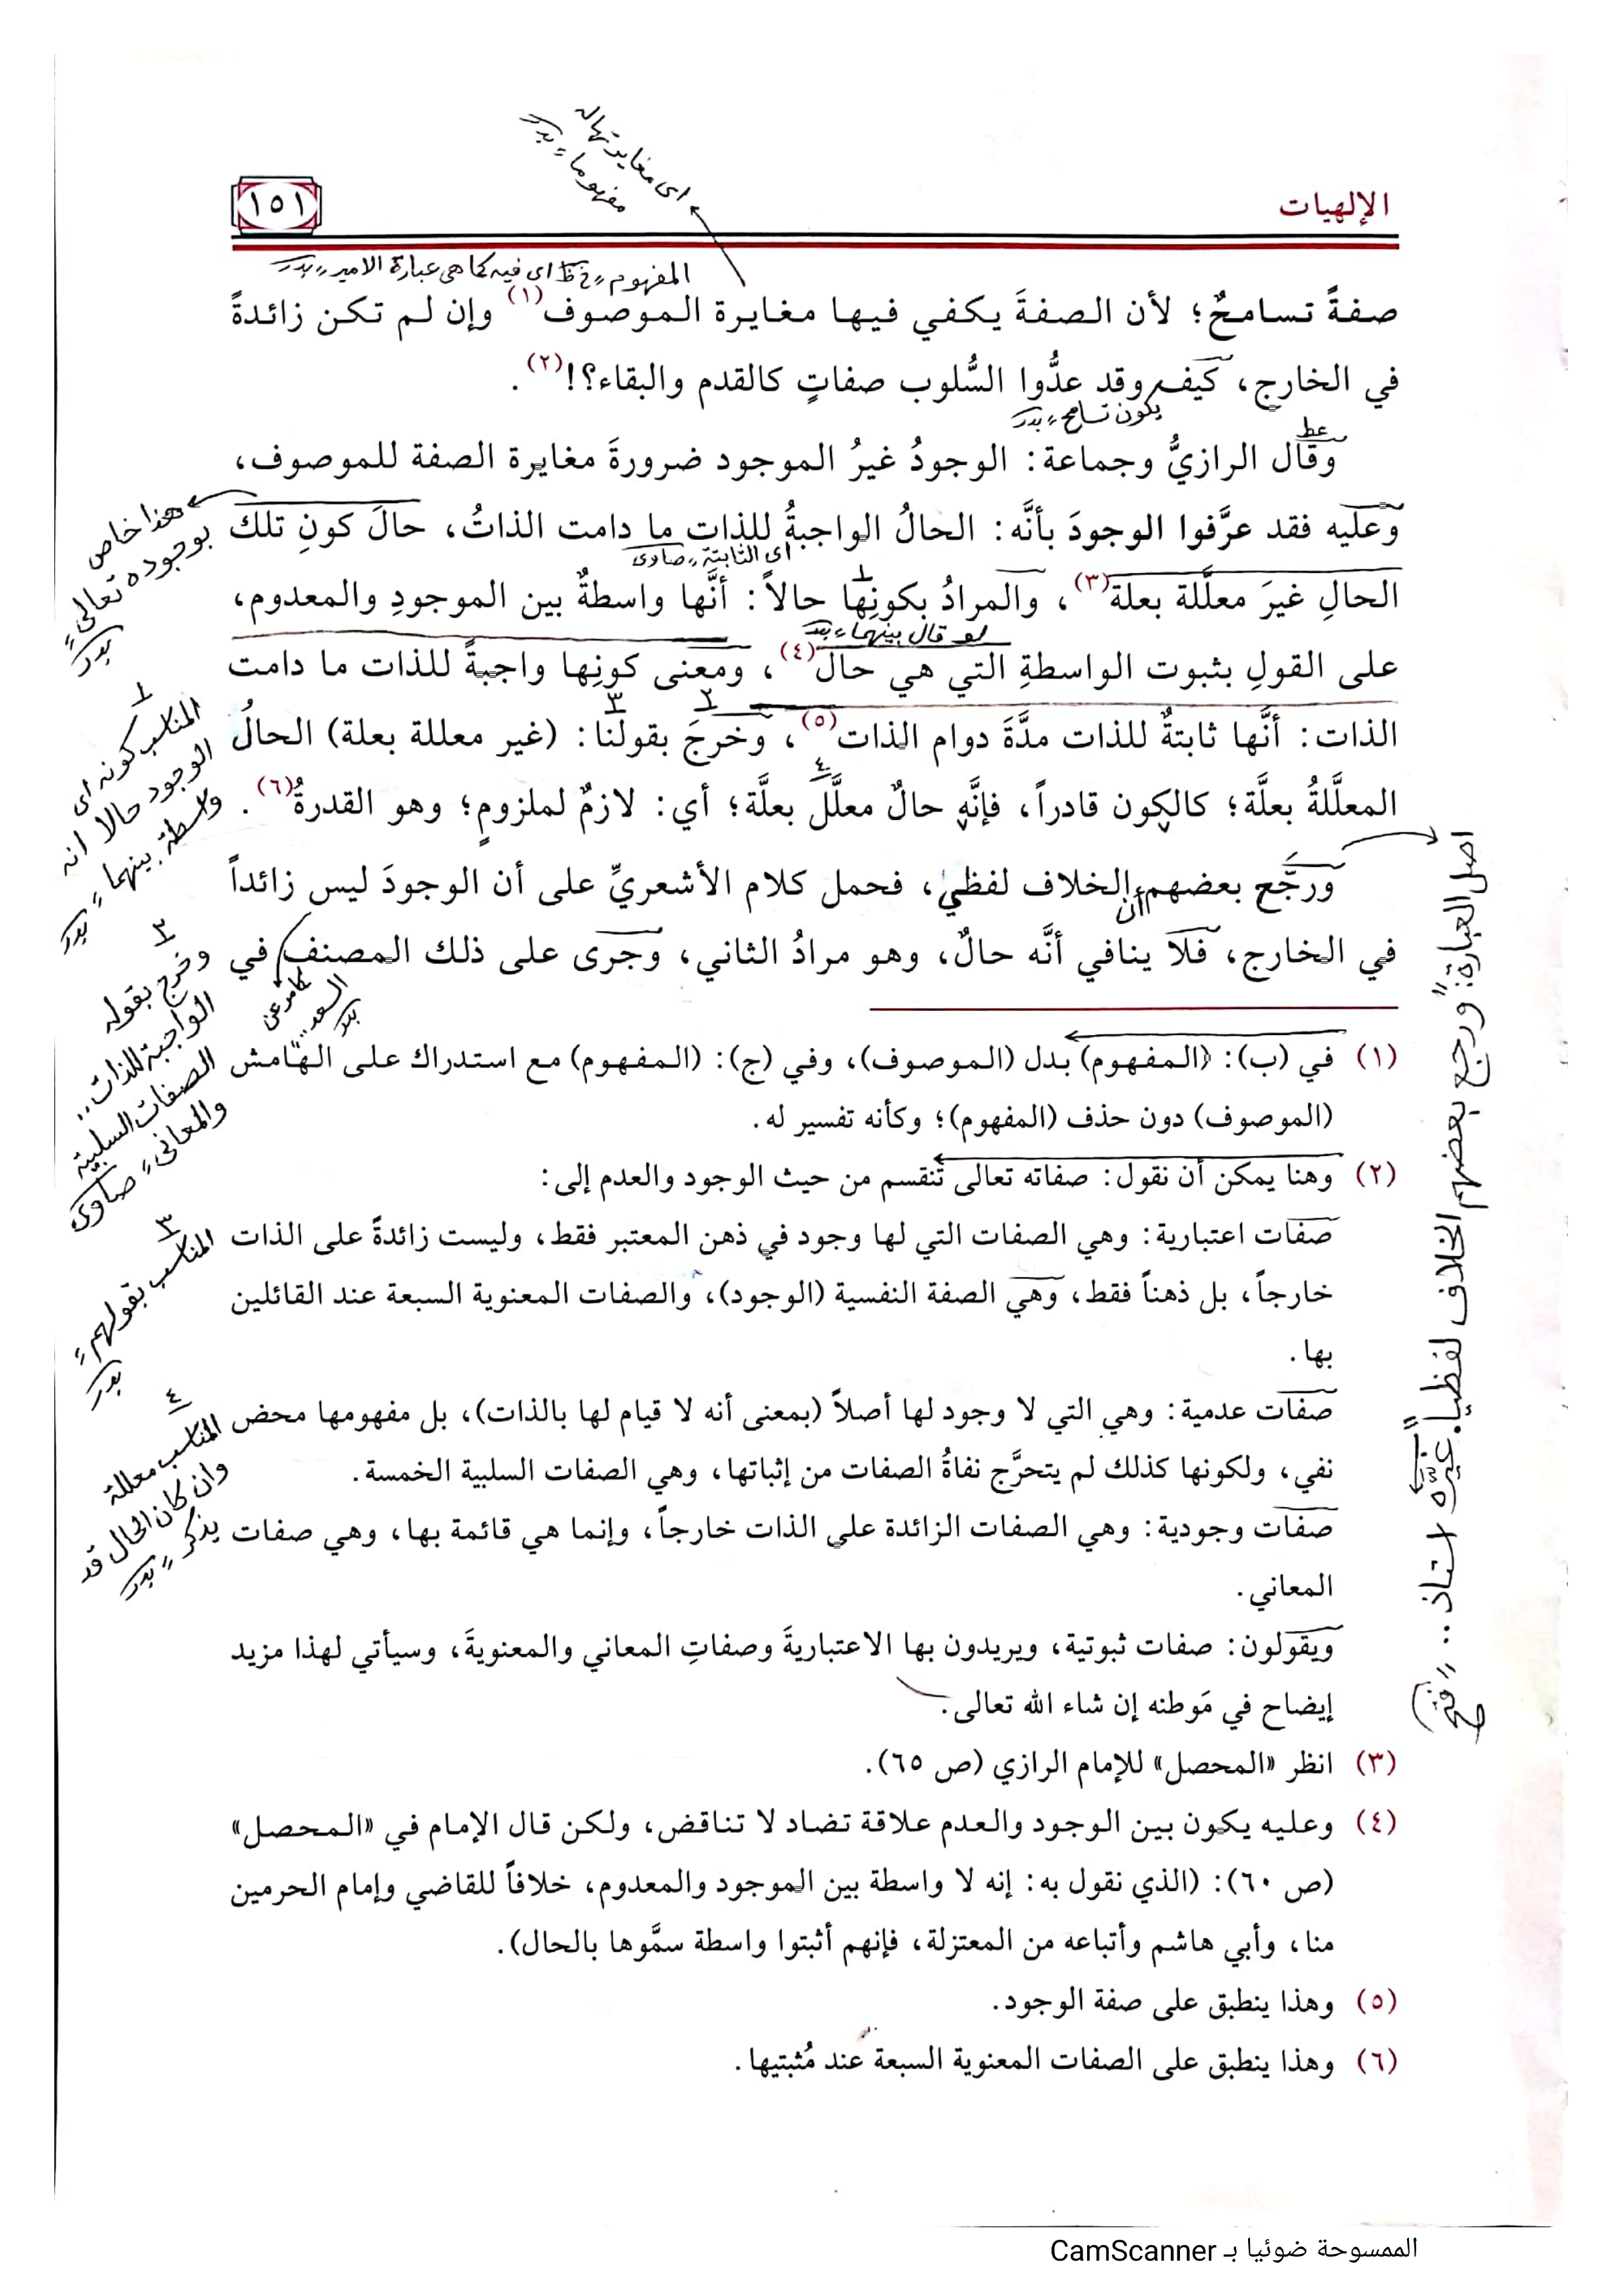 اى مغايرتها له
مفهوما
بدر
الإلهيات
١٥١
المفهوم خ ظ اى فيه كما هى عبارة الامير بدر
صفةً تسامحٌ؛ لأن الصفةَ يكفي فيها مغايرة الموصوف(١) وإن لم تكن زائدةً
في الخارج، كيف وقد عدُّوا السُّلوب صفاتٍ كالقدم والبقاء؟!(٢).
يكون تسامح بدر
عط
وقال الرازيُّ وجماعة: الوجودُ غيرُ الموجود ضرورةَ مغايرة الصفة للموصوف،
وعليه فقد عرَّفوا الوجودَ بأنَّه: الحالُ الواجبةُ للذات ما دامت الذاتُ، حالَ كونِ تلك
اى الثابتة صاوى
الحالِ غيرَ معلَّلة بعلة(٣)، والمرادُ بكونِها حالاً: أنَّها واسطةٌ بين الموجودِ والمعدوم،
لو قال بينهما بدر
على القولِ بثبوت الواسطةِ التي هي حال(٤)، ومعنى كونِها واجبةً للذات ما دامت
الذات: أنَّها ثابتةٌ للذات مدَّةَ دوام الذات(٥)، وخرجَ بقولنا: (غير معللة بعلة) الحالُ
المعلَّلةُ بعلَّة؛ كالكون قادراً، فإنَّه حالٌ معلَّلٌ بعلَّة؛ أي: لازمٌ لملزومٍ؛ وهو القدرةُ(٦).
ورجَّع بعضهم الخلاف لفظي، فحمل كلام الأشعريِّ على أن الوجودَ ليس زائداً
ان
في الخارج، فلا ينافي أنَّه حالٌ، وهو مرادُ الثاني، وجرى على ذلك المصنف في
كما مر عن
السعد
بدر
هذا خاص
بوجوده تعالى
بدر
١
المناسب كونه اى
الوجود حالا انه
واسطة بينهما
بدر
٣
وخرج بقوله
الواجبة للذات
الصفات السلبية
والمعانى صاوى
٣
المناسب بقولهم
بدر
٤
المناسب معللة
وان كان الحال قد
يذكر بدر
اصل العبارة: "ورجع بعضهم الخلاف لفظياً". غيَّره استاذ.. فتح
(١) في (ب): (المفهوم) بدل (الموصوف)، وفي (ج): (المفهوم) مع استدراك على الهامش
(الموصوف) دون حذف (المفهوم)؛ وكأنه تفسير له.
(٢) وهنا يمكن أن نقول: صفاته تعالى تنقسم من حيث الوجود والعدم إلى:
صفات اعتبارية: وهي الصفات التي لها وجود في ذهن المعتبر فقط، وليست زائدةً على الذات
خارجاً، بل ذهناً فقط، وهي الصفة النفسية (الوجود)، والصفات المعنوية السبعة عند القائلين
بها.
صفات عدمية: وهي التي لا وجود لها أصلاً (بمعنى أنه لا قيام لها بالذات)، بل مفهومها محض
نفي، ولكونها كذلك لم يتحرَّج نفاةُ الصفات من إثباتها، وهي الصفات السلبية الخمسة.
صفات وجودية: وهي الصفات الزائدة على الذات خارجاً، وإنما هي قائمة بها، وهي صفات
المعاني.
ويقولون: صفات ثبوتية، ويريدون بها الاعتباريةَ وصفاتِ المعاني والمعنويةَ، وسيأتي لهذا مزيد
إيضاح في مَوطنه إن شاء الله تعالى.
(٣) انظر «المحصل» للإمام الرازي (ص ٦٥).
(٤) وعليه يكون بين الوجود والعدم علاقة تضاد لا تناقض، ولكن قال الإمام في «المحصل»
(ص ٦٠): (الذي نقول به: إنه لا واسطة بين الموجود والمعدوم، خلافاً للقاضي وإمام الحرمين
منا، وأبي هاشم وأتباعه من المعتزلة، فإنهم أثبتوا واسطة سمَّوها بالحال).
(٥) وهذا ينطبق على صفة الوجود.
(٦) وهذا ينطبق على الصفات المعنوية السبعة عند مُثبتيها.
الممسوحة ضوئيا بـ CamScanner